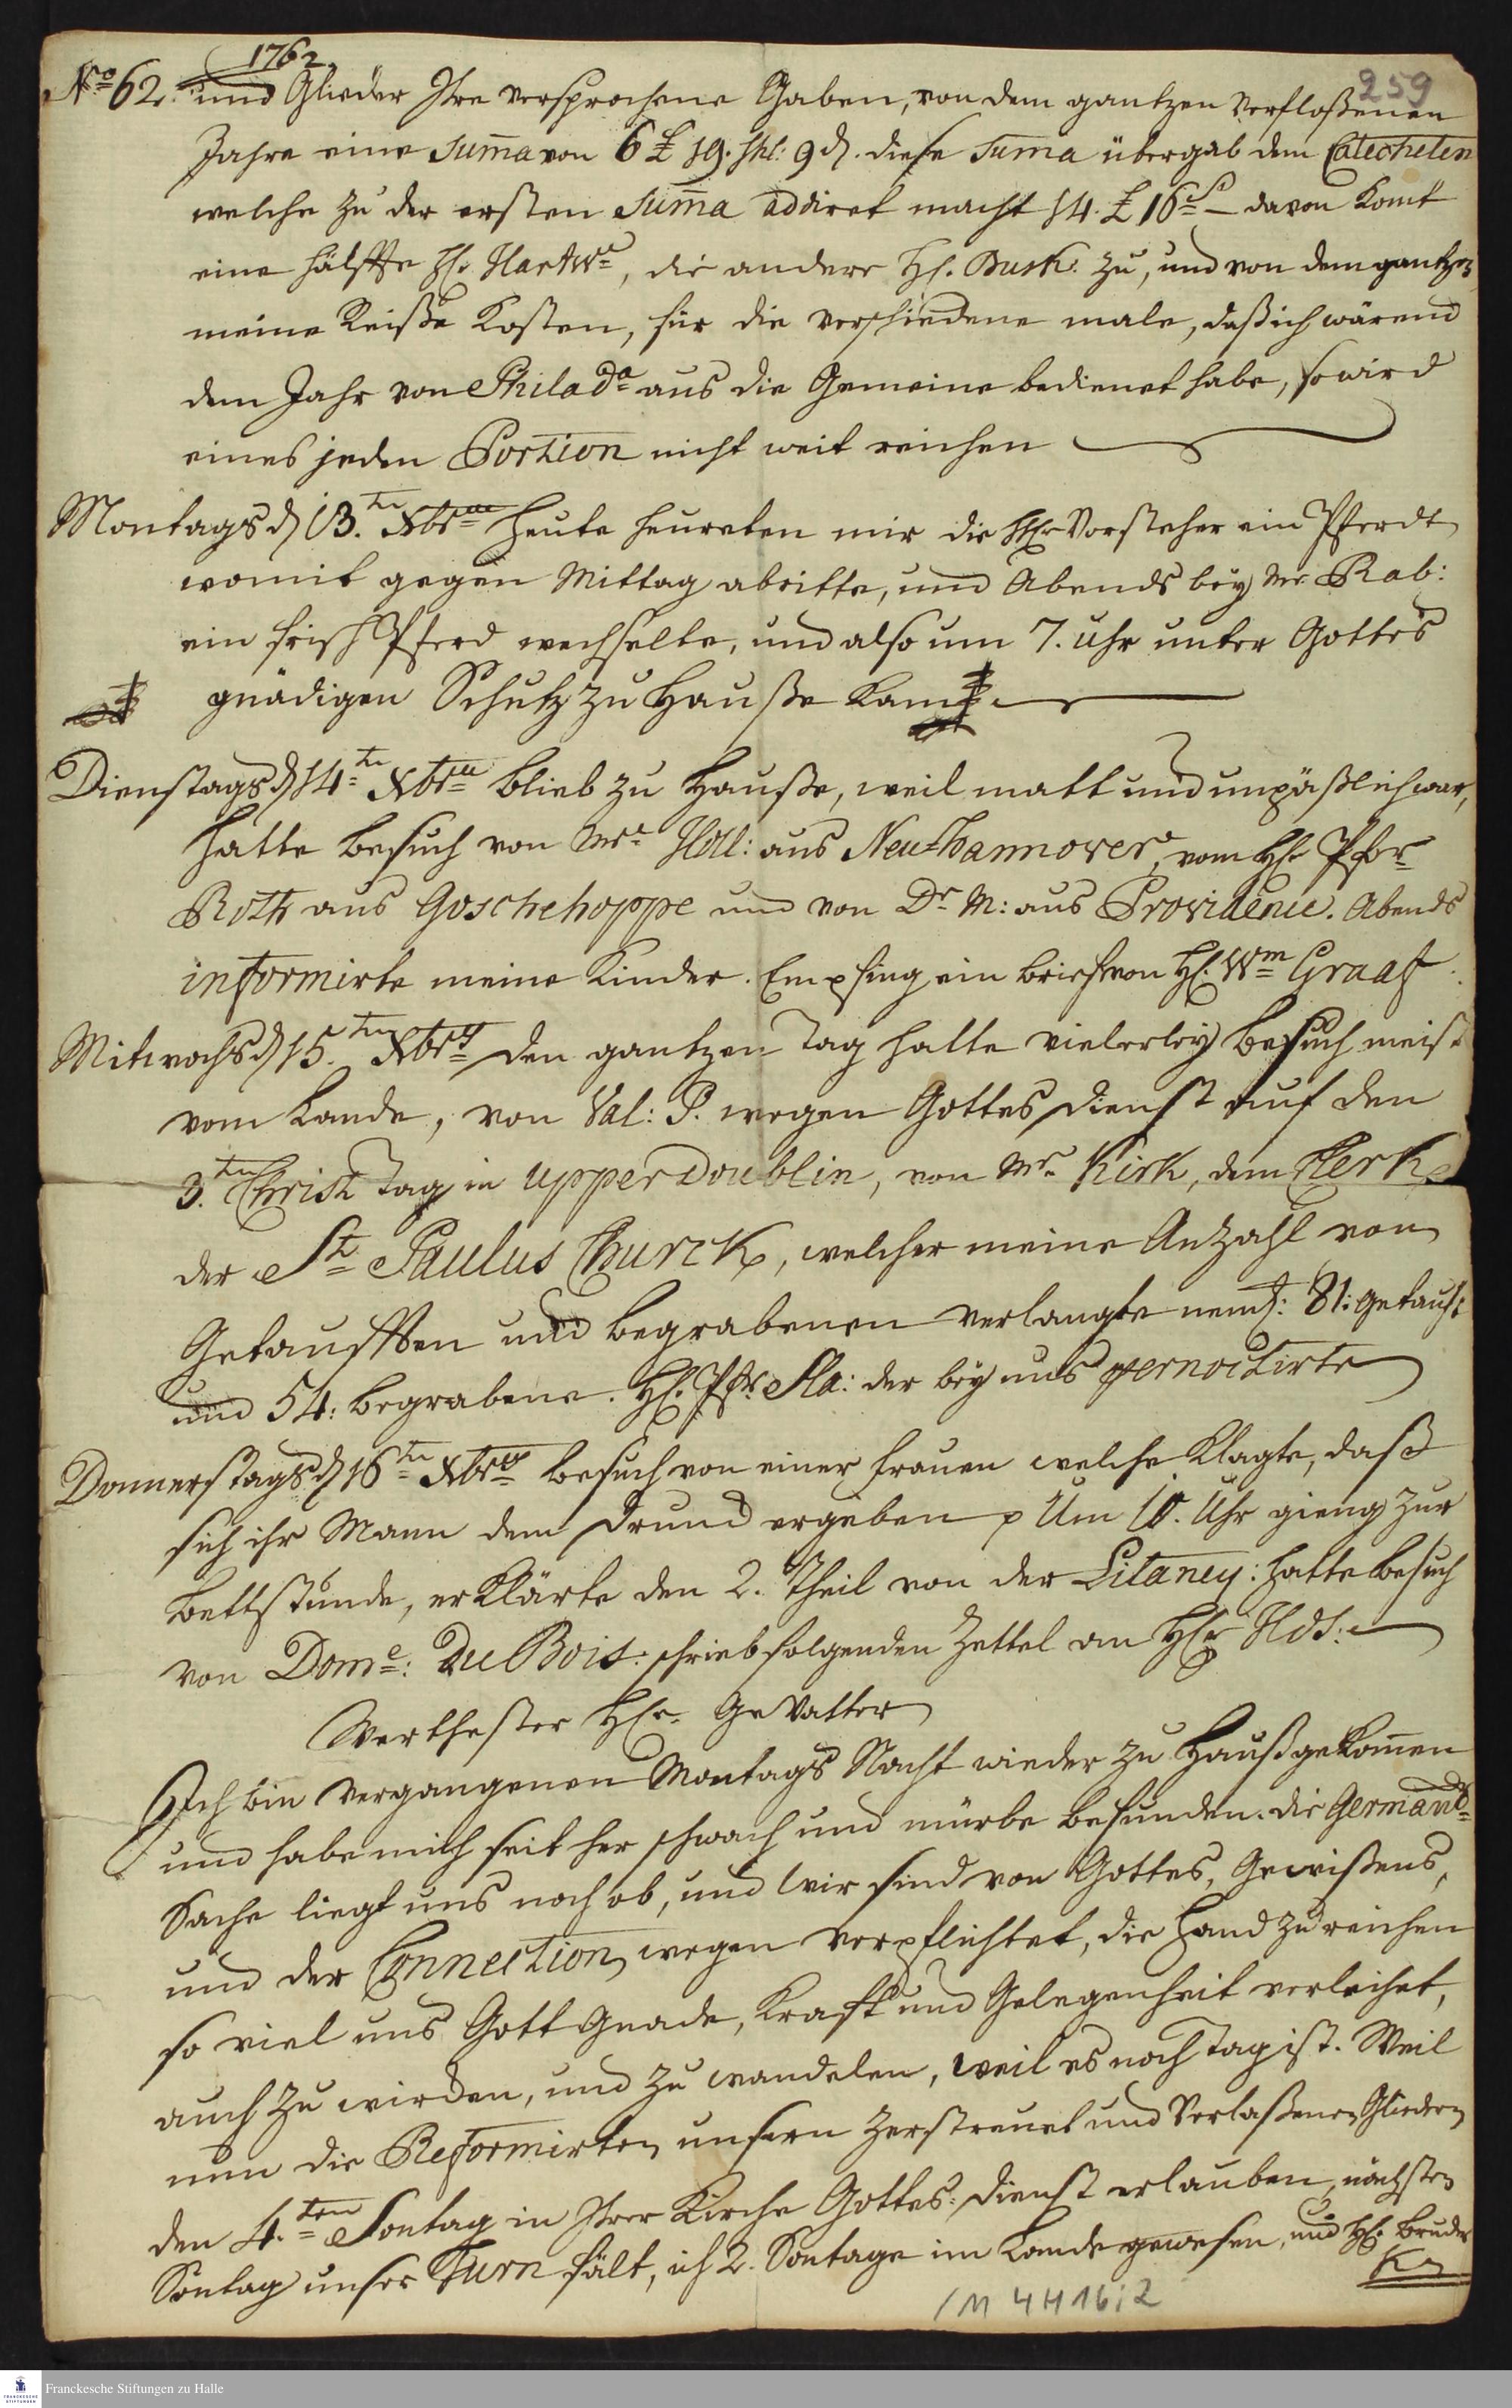 1762.
259
No 62. und Glieder Ihre versprochene Gaben, von dem gantzen verfloßenen
Jahre eine Sum̄a von 6 £ 19. shl: 9 d. diese Suma übergab dem Catecheten
welche zu der ersten Sum̄a addiret macht 14. £ 16 s – davon komt
eine hälffte H. Hartw:, die andere H. Busk: zu, und von dem gantzen
meine Reiße Kosten, für die verschiedene male, daß ich wärend
dem Jahr von Philada aus die Gemeine bedienet habe, so wird
eines jeden Portion nicht weit reichen
Montags d 13.ten Xbr heute heureten mir die HE Vorsteher ein Pferdt
womit gegen Mittag abritte, und Abends bey Mr Rab:
ein frisch Pferd wechselte, und also um 7. Uhr unter Gottes
gnädigen Schutz zu Hauße kam
Dienstags d 14ten Xbr blieb zu Hauße, weil matt und unpäßlich war,
hatte Besuch von Mr Hill: aus Neu-hannover, vom H Pfr
Roth aus Goschehoppe und von Dr M: aus Providence. Abends
informirte meine Kinder. Empfing ein brief von H. Wm Graaf.
Mitwochs d 15.ten Xbr den gantzen Tag hatte vielerley Besuch meist
vom Lande, von Val: P. wegen Gottes dienst auf den
3.ten Christ Tag in upper doublin, von Mr Kirk, dem Clerk
der St Paulus Church, welcher meine Anzahl von
Getaufften und begrabenen verlangte neml: 81: getauft
und 54: begrabene. H. Pfr Sla: der bey uns pernoctirte
Donnerstags d 16ten Xbr besuch von einer frauen welche klagte, daß
sich ihr Mann dem Trunck ergeben p Um 10. Uhr gieng zur
bettstunde, erklärte den 2. Theil von der Litaney: hatte besuch
von Dome: Du Bois: schrieb folgenden Zettel an H
Werthester H. GeVatter
Ich bin vergangenen Montags Nacht wieder zu Hauß gekom̄en
und habe mich seit her schwach und mürbe befunden. die Germant:
Sache liegt uns noch ob, und wir sind von Gottes, Gewißens,
und der Connection wegen verpflichtet, die Hand zu reichen
so viel uns Gott Gnade, Kraft und Gelegenheit verleihet,
auch zu wirken, und zu wandelen, weil es noch Tag ist. Weil
nun die Reformirten unsern zerstreuet und Verlaßenen Gliedern
den 4.ten Sontag in Ihrer Kirche Gottes-dienst erlauben, nächsten
Sontag unser Turn fält, ich 2. Sontage im Lande gewesen, und H. Bruder
Kr
/M 4 H 16 : 2
Franckesche Stiftungen zu Halle